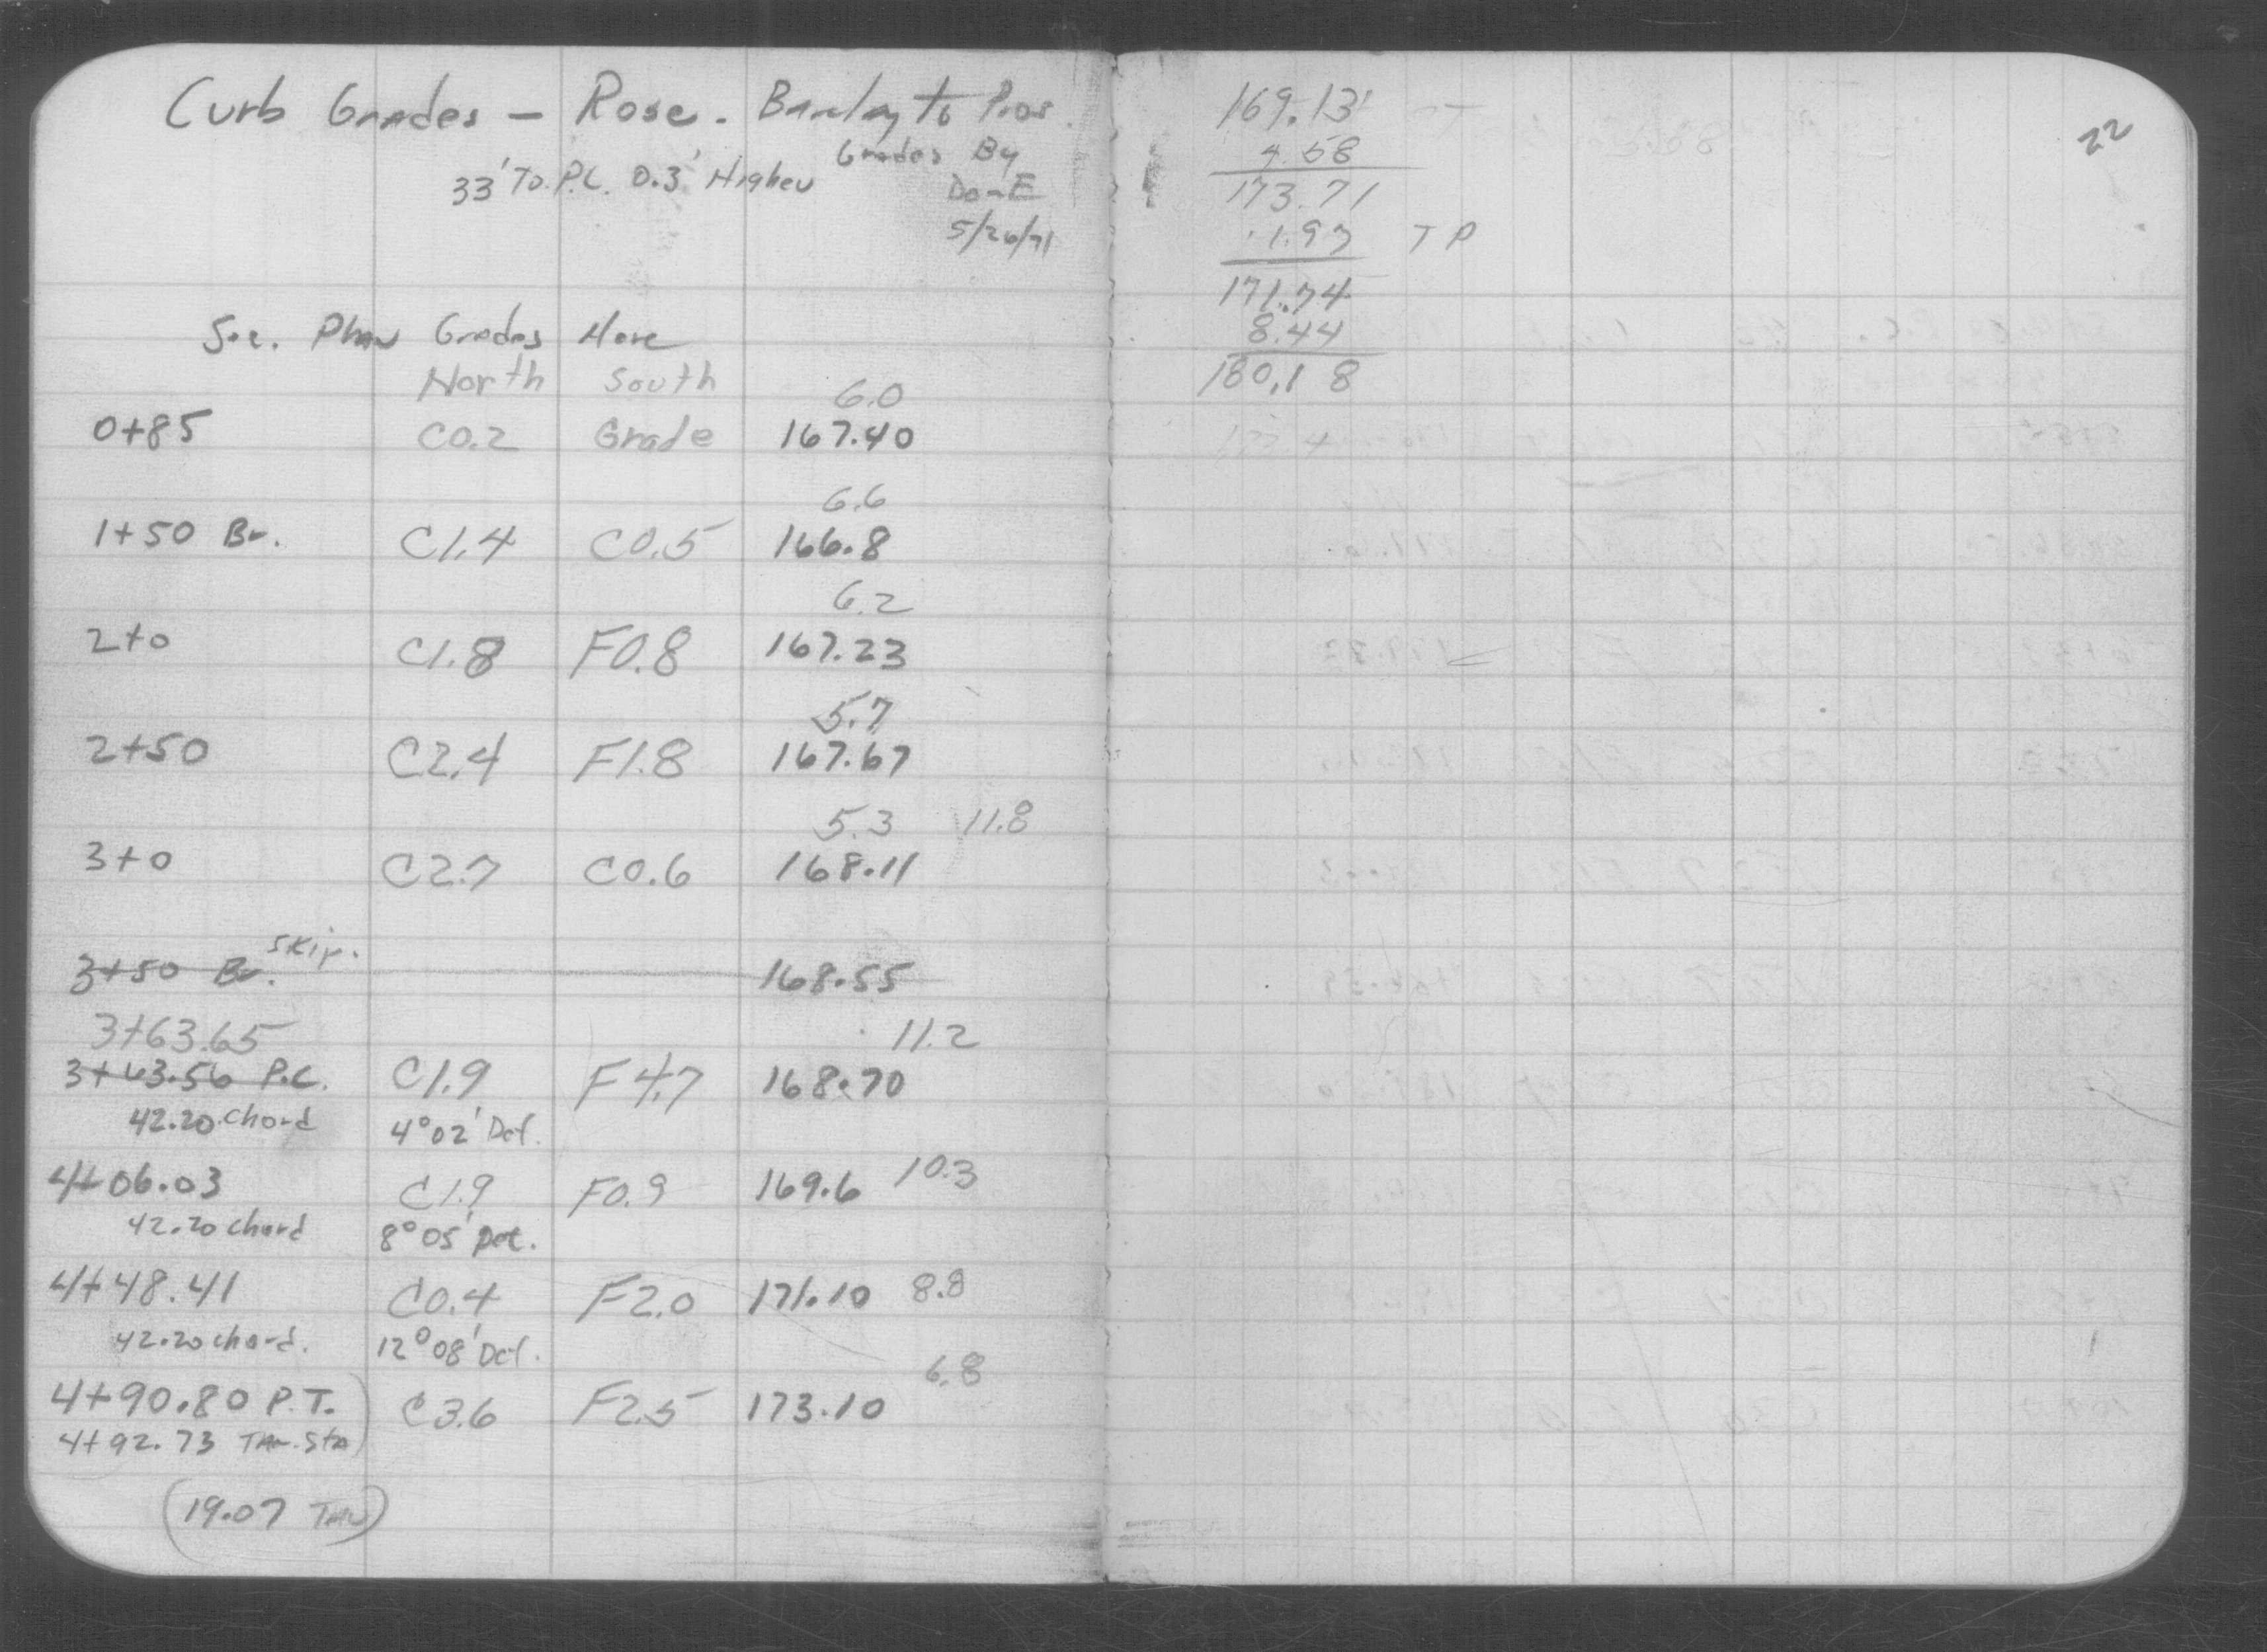 Curb Grades - Rose. Barclay to Pros.
33' To. P.C. 0.3' Higher
Grades By
Don E
5/26/71
See. Plan Grades Here
North South 6.0
0+85 C0.2 Grade 167.40
6.6
1+50 Br. C1.4 C0.5 166.8
6.2
2+0 C1.8 F0.8 167.23
5.7
2+50 C2.4 F1.8 167.67
5.3 11.8
3+0 C2.7 C0.6 168.11
skip.
3+50 Br. 168.55
3+63.65 11.2
3+63.56 P.C. C1.9 F4.7 168.70
42.20 chord 4°02' Def.
4+06.03 C1.9 F0.9 169.6 10.3
42.20 chord 8°05' Def.
4+48.41 C0.4 F2.0 171.10 8.8
42.20 chord. 12°08' Def.
6.8
4+90.80 P.T. C3.6 F2.5 173.10
4+92.73 Tan. Sta
(19.07 Tan)
22
169.13
4.58
173.71
1.97 TP
171.74
8.44
180.18